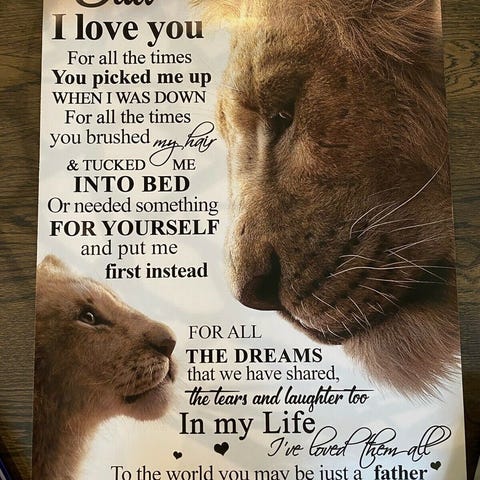 Dad
I love you
For all the times
You picked me up
WHEN I WAS DOWN
For all the times
you brushed my hair
& TUCKED ME
INTO BED
Or needed something
FOR YOURSELF
and put me
first instead
FOR ALL
THE DREAMS
that we have shared,
the tears and laughter too
In my Life
I've loved them all
To the world you may be just a father